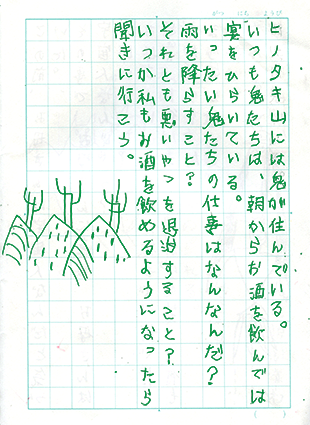 ヒノタキ山には鬼が住んでいる。
いつも鬼たちは、朝からお酒を飲んでは
宴をひらいている。
いったい鬼たちの仕事はなんなんだ？
雨を降らすこと？
それとも悪いやつを退治すること？
いつか私もお酒を飲めるようになったら
聞きに行こう。